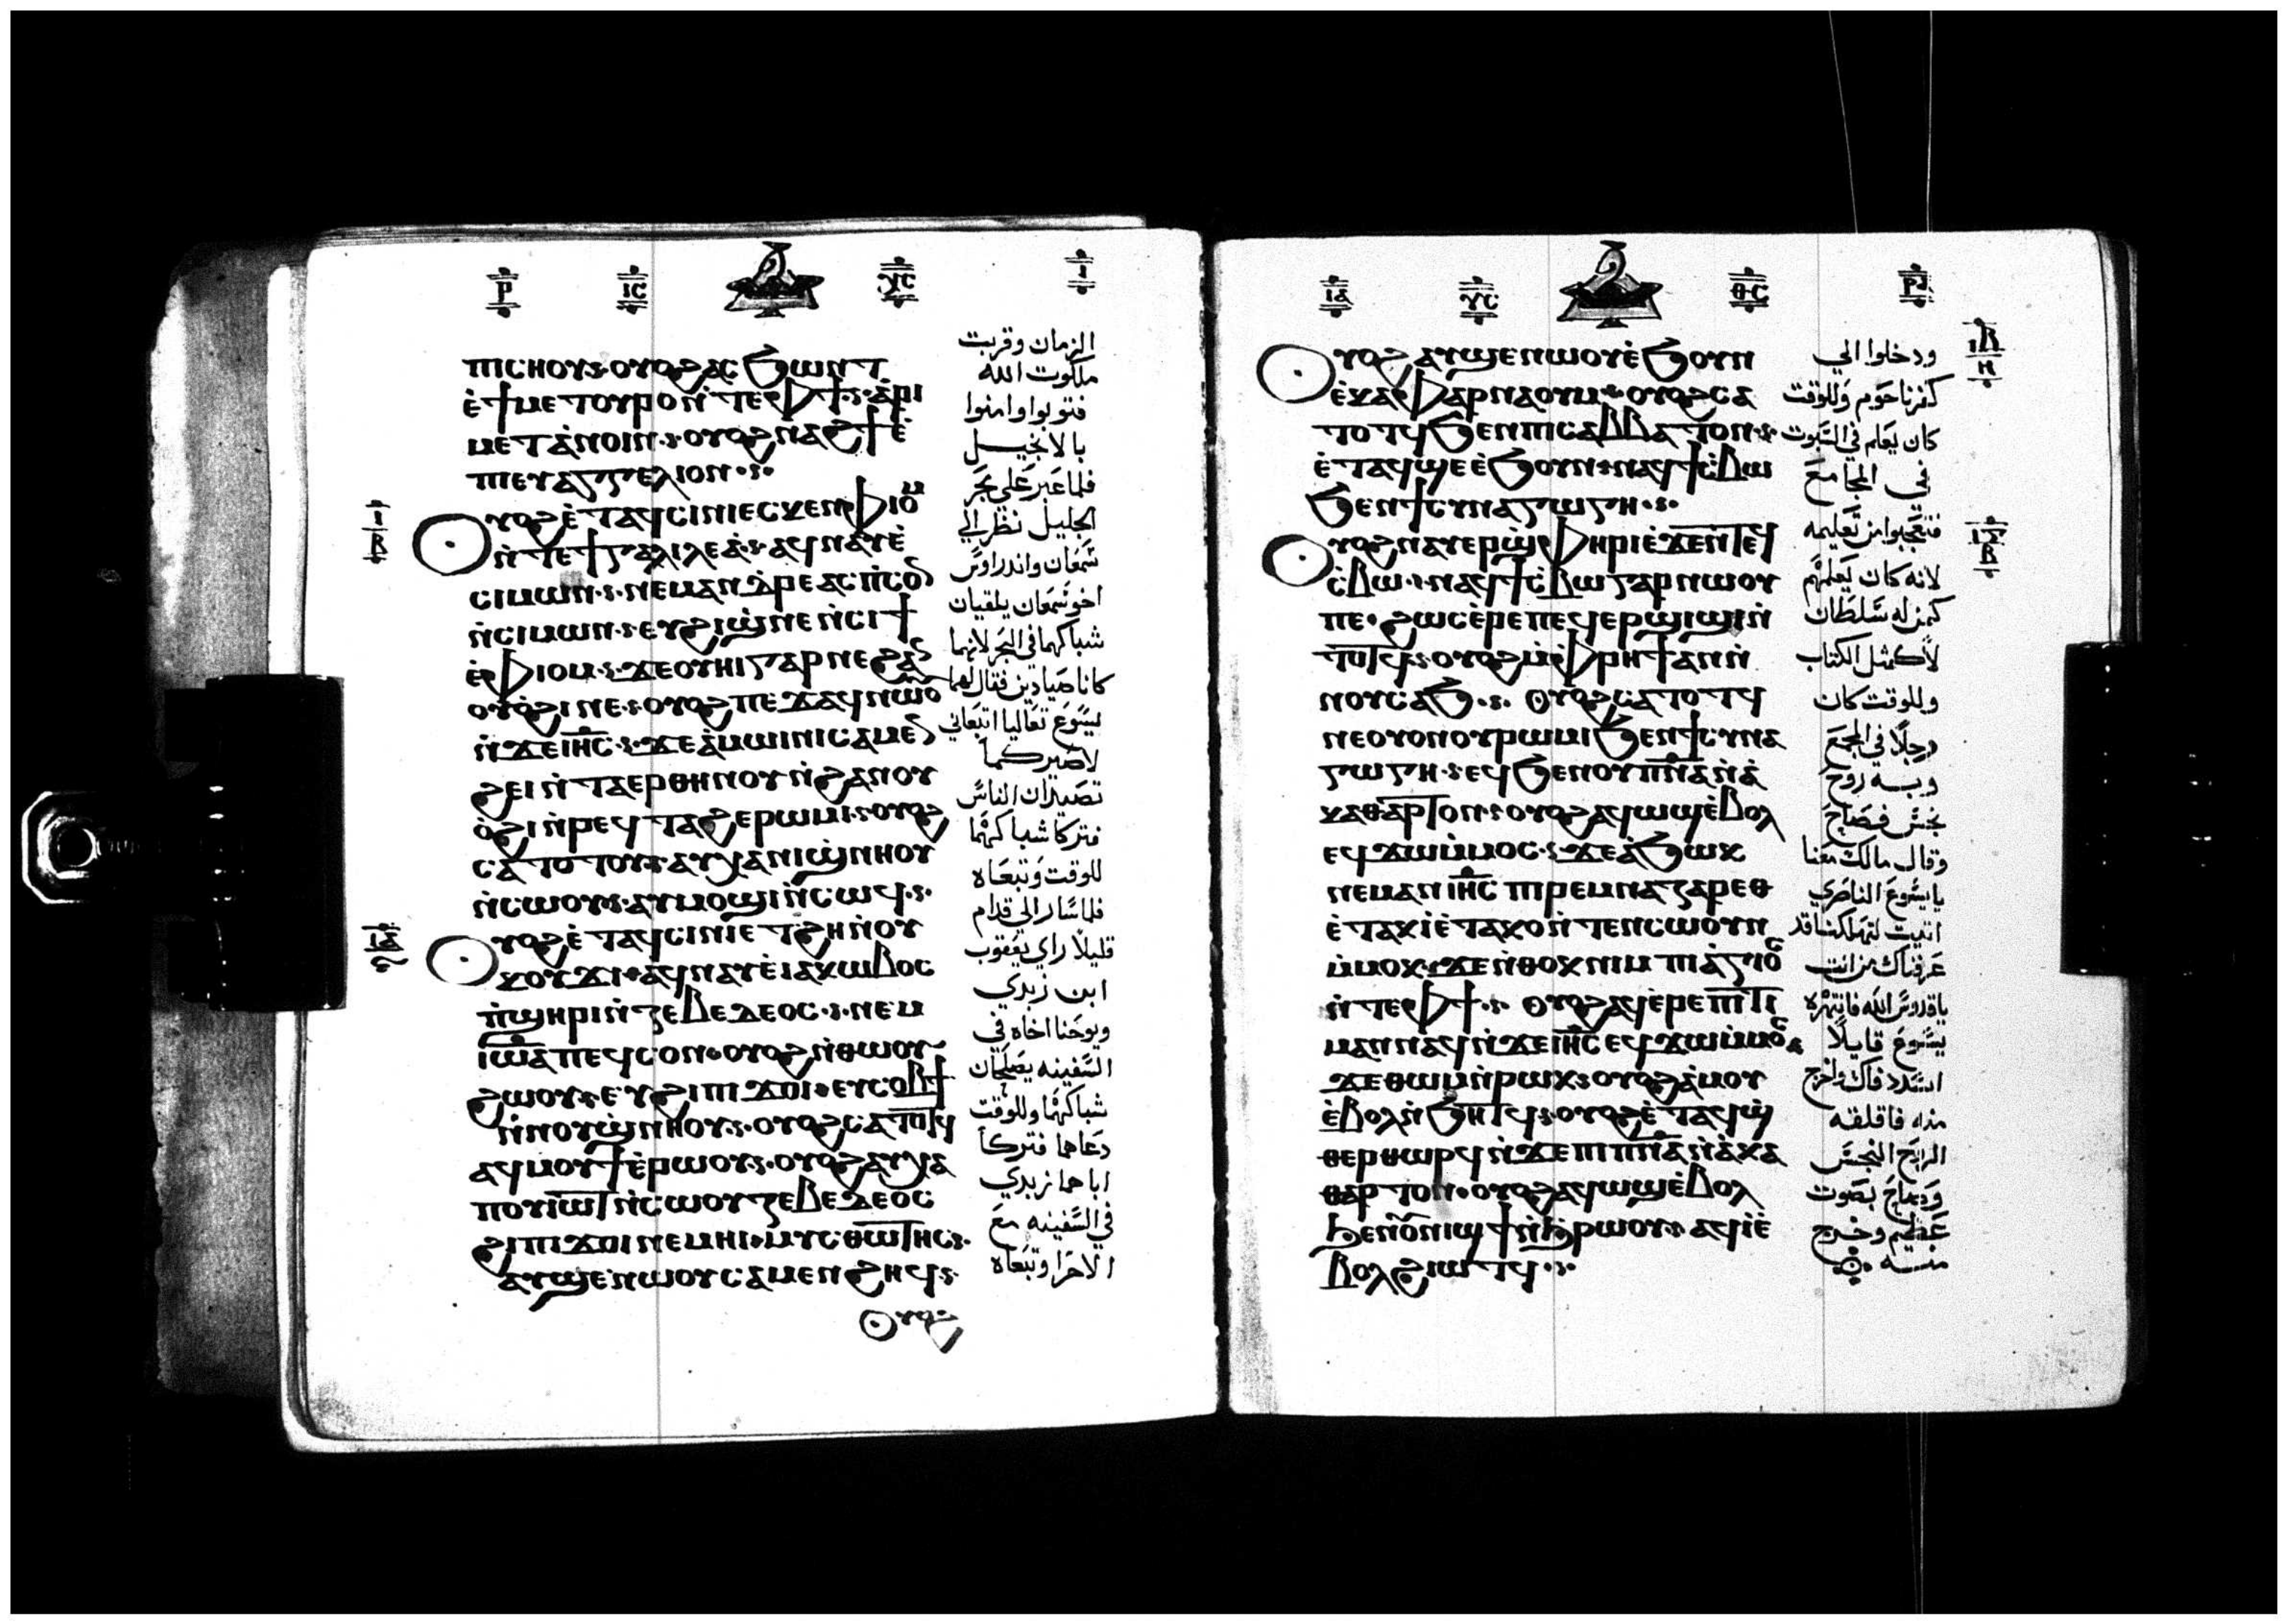 ⲣ ⲓⲥ ⲩⲥ ⲓ
ⲡⲓⲥⲏⲟⲩ·ⲟⲩⲟϩ ⲁⲥϧⲱⲛⲧ
ⲉ̀ϯⲙⲉⲧⲟⲩⲣⲟ ⲛ̀ⲧⲉⲫϯ·ⲁ̀ⲣⲓ
ⲙⲉⲧⲁ̀ⲛⲟⲓⲛ·ⲟⲩⲟϩ ⲛⲁϩϯ ⲉ̀
ⲡⲓⲉⲩⲁⲅⲅⲉⲗⲓⲟⲛ·
ⲟⲩⲟϩ ⲉ̀ⲧⲁϥⲥⲓⲛⲓ ⲉⲥⲕⲉⲛ ⲫⲓⲟⲙ
ⲛ̀ⲧⲉϯⲅⲁⲗⲓⲗⲉⲁ̀·ⲁϥⲛⲁⲩ ⲉ̀
ⲥⲓⲙⲱⲛ·ⲛⲉⲙ ⲁⲛⲇⲣⲉⲁⲥ ⲡ̀ⲥⲟⲛ
ⲛ̀ⲥⲓⲙⲱⲛ·ⲉⲩϩⲓϣⲛⲉ ⲛ̀ⲥⲓϯ
ⲉ̀ⲫⲓⲟⲙ·ϫⲉ ⲟⲩⲏⲓ ⲅⲁⲣ ⲛⲉϩⲁⲛ
ⲟⲩⲟ̀ϩⲓ ⲛⲉ·ⲟⲩⲟϩ ⲡⲉϫⲁϥ ⲛⲱⲟⲩ
ⲛ̀ϫⲉ ⲓⲏⲥ·ϫⲉ ⲁ̀ⲙⲱⲓⲛⲓ ⲥⲁⲙⲉⲛ
ϩⲏⲓ ⲛ̀ⲧⲁⲉⲣⲑⲏⲛⲟⲩ ⲛ̀ϩⲁⲛⲟⲩ
ⲟ̀ϩⲓ ⲛ̀ⲣⲉϥⲧⲁϩⲉⲣⲱⲙⲓ·ⲟⲩⲟϩ
ⲥⲁⲧⲟⲧⲟⲩ·ⲁⲩⲭⲁ ⲛⲓϣⲛⲏⲟⲩ
ⲛ̀ⲥⲱⲟⲩ·ⲁⲩⲙⲟϣⲓ ⲛ̀ⲥⲱϥ·
ⲟⲩⲟϩ ⲉ̀ⲧⲁϥⲥⲓⲛⲓ ⲉⲧϩⲏ ⲛ̀ⲟⲩ
ⲕⲟⲩϫⲓ·ⲁϥⲛⲁⲩ ⲉ̀ⲓⲁⲕⲱⲃⲟⲥ
ⲡ̀ϣⲏⲣⲓ ⲛ̀ⲍⲉⲃⲉⲇⲉⲟⲥ·ⲛⲉⲙ
ⲓⲱⲁ ⲡⲉϥⲥⲟⲛ·ⲟⲩⲟϩ ⲛ̀ⲑⲱⲟⲩ
ϩⲱⲟⲩ·ⲉⲩϩⲓ ⲡⲓϫⲟⲓ·ⲉⲩⲥⲟⲃϯ
ⲛ̀ⲛⲟⲩϣⲛⲏⲟⲩ·ⲟⲩⲟϩ ⲥⲁⲧⲟⲧϥ
ⲁϥⲙⲟⲩϯ ⲉ̀ⲣⲱⲟⲩ·ⲟⲩⲟϩ ⲁⲩⲭⲁ
ⲡⲟⲩⲓⲱⲧ ⲛ̀ⲥⲱⲟⲩ ⲍⲉⲃⲉⲇⲉⲟⲥ
ϩⲓ ⲡⲓϫⲟⲓ ⲛⲉⲙ ⲛⲓⲙⲩⲥⲑⲱⲧⲏⲥ·
ⲁⲩϣⲉⲛⲱⲟⲩ ⲥⲁⲙⲉⲛϩⲏϥ·
ⲟⲩⲟϩ
الزمان وقربت
ملكوت الله
فتوبوا وامنوا
بالانجيل
فلما عبر على بحر
الجليل نظر الي
سمعان واندراوس
اخو سمعان يلقيان
شباكهما في البحر لانهما
كانا صيادين فقال لهما
يسوع تعاليا اتبعاني
لاصيركما
تصيدان الناس
فتركا شباكهما
للوقت وتبعاه
فلما سار الي قدام
قليلا راي يعقوب
ابن زبدي
ويوحنا اخاه في
السفينه يصلحان
شباكهما وللوقت
دعاهما فتركا
اباهما زبدي
في السفينه مع
الاجرا وتبعاه
ⲓⲁ ⲩⲥ ⲑⲥ ⲣⲁ
ⲟⲩⲟϩ ⲁⲩϣⲉⲛⲱⲟⲩ ⲉ̀ϧⲟⲩⲛ
ⲉ̀ⲕⲁⲫⲁⲣⲛⲁⲟⲩⲙ·ⲟⲩⲟϩ ⲥⲁ
ⲧⲟⲧϥ ϧⲉⲛ ⲡⲓⲥⲁⲃⲃⲁⲧⲟⲛ·
ⲉ̀ⲧⲁϥϣⲉ ⲉ̀ϧⲟⲩⲛ·ⲛⲁϥϯⲥ̀ⲃⲱ
ϧⲉⲛ ϯⲥⲩⲛⲁⲅⲱⲅⲏ·
ⲟⲩⲟϩ ⲛⲁⲩⲉⲣϣ̀ⲫⲏⲣⲓ ⲉ̀ϫⲉⲛ ⲧⲉϥ
ⲥ̀ⲃⲱ·ⲛⲁϥϯⲥ̀ⲃⲱ ⲅⲁⲣ ⲛⲱⲟⲩ
ⲡⲉ·ϩⲱⲥ ⲉ̀ⲣⲉ ⲡⲉϥⲉⲣϣⲓϣⲓ ⲛ̀
ⲧⲟⲧϥ·ⲟⲩⲟϩ ⲙ̀ⲫⲣⲏϯ ⲁⲛ ⲛ̀
ⲛⲟⲩⲥⲁϧ·ⲟⲩⲟϩ ⲥⲁⲧⲟⲧϥ
ⲛⲉⲟⲩⲟⲛ ⲟⲩⲣⲱⲙⲓ ϧⲉⲛ ϯⲥⲩⲛⲁ
ⲅⲱⲅⲏ·ⲉϥϧⲉⲛ ⲟⲩⲡⲛⲁ ⲛ̀ⲁ̀
ⲕⲁⲑⲁⲣⲧⲟⲛ·ⲟⲩⲟϩ ⲁϥⲱϣ ⲉ̀ⲃⲟⲗ
ⲉϥϫⲱ ⲙ̀ⲙⲟⲥ·ϫⲉ ⲁ̀ϧⲱⲕ
ⲛⲉⲙⲁⲛ ⲓⲏⲥ ⲡⲓⲣⲉⲙⲛⲁⲍⲁⲣⲉⲑ
ⲉ̀ⲧⲁⲕⲓ̀ ⲉ̀ⲧⲁⲕⲟⲛ ⲧⲉⲛⲥⲱⲟⲩⲛ
ⲙ̀ⲙⲟⲕ·ϫⲉ ⲛ̀ⲑⲟⲕ ⲛⲓⲙ ⲡⲓⲁ̀ⲅⲓⲟⲥ
ⲛ̀ⲧⲉⲫϯ·ⲟⲩⲟϩ ⲁϥⲉ̀ⲣⲉⲡⲓⲧⲓ
ⲙⲁⲛ ⲛⲁϥ ⲛ̀ϫⲉ ⲓⲏⲥ ⲉϥϫⲱ ⲙ̀ⲙⲟⲥ
ϫⲉ ⲑⲱⲙ ⲛ̀ⲣⲱⲕ·ⲟⲩⲟϩ ⲁ̀ⲙⲟⲩ
ⲉ̀ⲃⲟⲗ ⲛ̀ϧⲏⲧϥ·ⲟⲩⲟϩ ⲉ̀ⲧⲁϥϣ̀
ⲑⲉⲣⲑⲱⲣϥ ⲛ̀ϫⲉ ⲡⲓⲡⲛⲁ ⲛ̀ⲁ̀ⲕⲁ
ⲑⲁⲣⲧⲟⲛ·ⲟⲩⲟϩ ⲁϥⲱϣ ⲉ̀ⲃⲟⲗ
ϧⲉⲛ ⲟⲩⲛⲓϣϯ ⲛ̀ϧⲣⲱⲟⲩ·ⲁϥⲓ̀ ⲉ̀
ⲃⲟⲗ ϩⲓⲱⲧϥ·
ودخلوا الي
كفرناحوم وللوقت
كان يعلم في السبوت
في المجامع
فتعجبوا من تعليمه
لانه كان يعلمهم
كمن له سلطان
لا كمثل الكتاب
وللوقت كان
رجلا في المجمع
وبه روح
نجس فصاح
وقال مالك معنا
يا يسوع الناصري
اتيت لتهلكنا قد
عرفناك من انت
يا قدوس الله فانتهره
يسوع قايلا
استدد فاك واخرج
منه فاقلقه
الروح النجس
وصاح بصوت
عظيم وخرج
منه